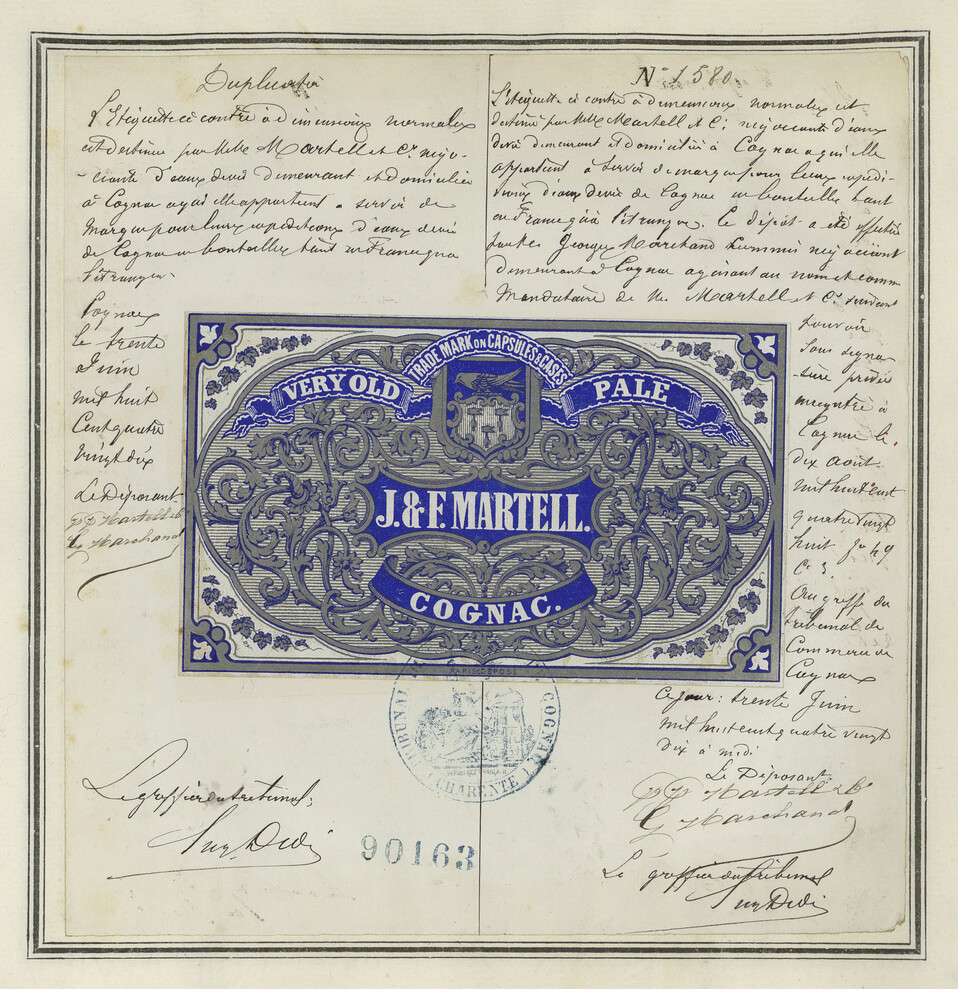 Duplicata
L'Etiquette ci contre à dimensions normales
est destinée par MM. Martell et Cie négo-
ciants d'eaux devie demeurant et domiciliés
à Cognac a qui elle appartient a servir de
Marque pour leurs expéditions d'eaux devie
de Cognac en bouteilles tant en France qua
l'étranger.
Cognac
le trente
Juin
mil huit
Cent quatre
vingt dix
Le Déposant
pp Martell & Co
G. Marchand
Le greffier du tribunal,
N° 1580.
L'Etiquette ci contre à dimensions normales est
destinée par MM. Martell et Cie négociants d'eaux
devie demeurant et domiciliés à Cognac a qui elle
appartient à servir de marque pour leurs expédi-
tions d'eaux devie de Cognac en bouteilles tant
en France qu'à l'étranger. Le dépôt a été effectué
par George Marchand Hummis négociant
demeurant à Cognac agissant au nom et comme
Mandataire de MM. Martell et Cie suivant
pouvoir
sous signa-
ture privée
enregistré à
Cognac le
dix Août
mil huit cent
quatre vingt
huit fo 49
C. 3
Au greffe du
tribunal de
Commerce de
Cognac
Ce jour: trente Juin
mil huit cent quatre vingt
dix à midi
Le Déposant
pp Martell & Co
G. Marchand
Le greffier du tribunal
TRADE MARK ON CAPSULES & CASES
VERY OLD
PALE
J. & F. MARTELL.
COGNAC.
TRIBUNAL
COGNAC
CHARENTE
90163